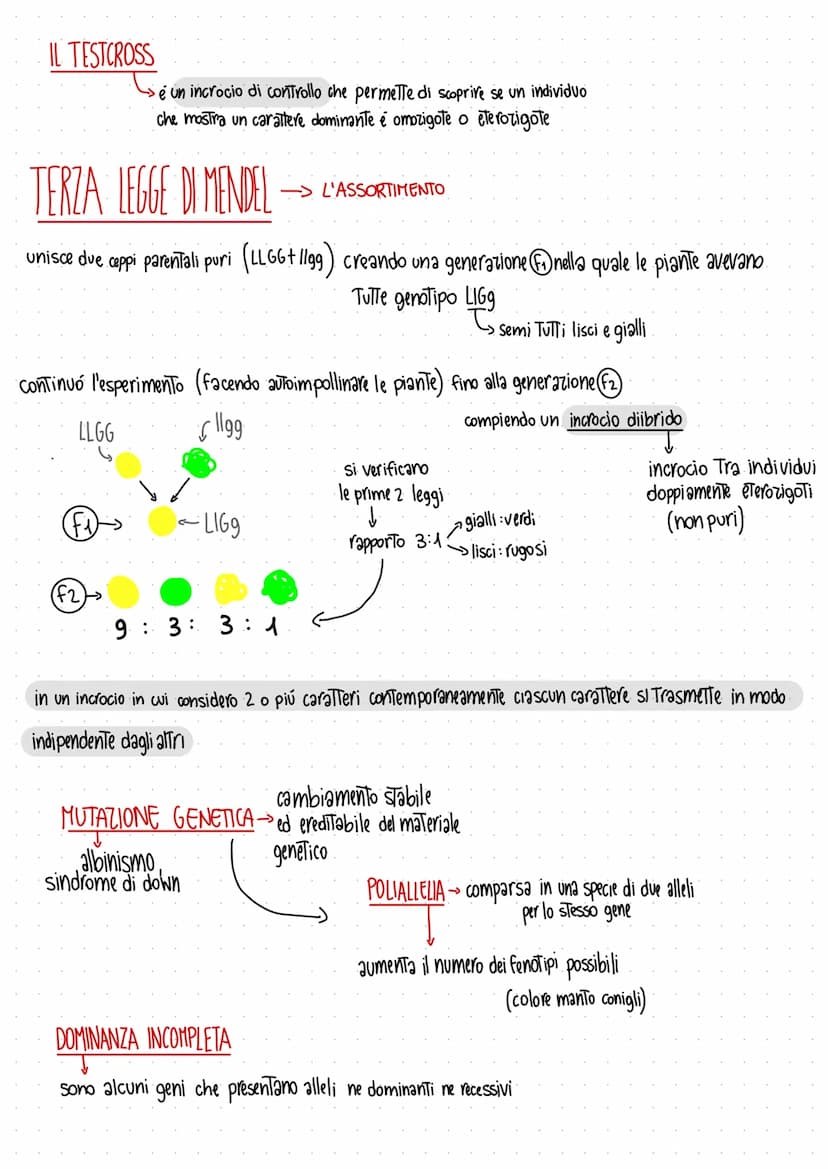 IL TESTCROSS
é un incrocio di controllo che permette di scoprire se un individuo
che mostra un carattere dominante é omozigote o eterozigote
TERZA LEGGE DI MENDEL → L'ASSORTIMENTO
unisce due ceppi parentali puri (LLGG+llgg) creando una generazione F1 nella quale le piante avevano
Tutte genotipo LlGg
semi tutti lisci e gialli
continuó l'esperimento (facendo autoimpollinare le piante) fino alla generazione F2
compiendo un incrocio diibrido
incrocio tra individui
doppiamente eterozigoti
(non puri)
LLGG
llgg
F1 → LlGg
si verificano
le prime 2 leggi
rapporto 3:1
gialli:verdi
lisci:rugosi
F2 →
9 : 3 : 3 : 1
in un incrocio in cui considero 2 o piú caratteri contemporaneamente ciascun carattere si trasmette in modo
indipendente dagli altri
MUTAZIONE GENETICA →
cambiamento stabile
ed ereditabile del materiale
genetico
albinismo
sindrome di down
POLIALLELIA → comparsa in una specie di due alleli
per lo stesso gene
aumenta il numero dei fenotipi possibili
(colore manto conigli)
DOMINANZA INCOMPLETA
sono alcuni geni che presentano alleli ne dominanti ne recessivi